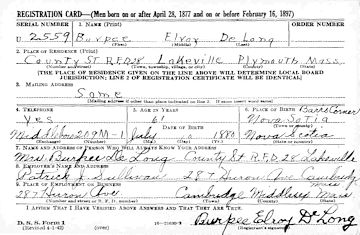 REGISTRATION CARD—(Men born on or after April 28, 1877 and on or before February 16, 1897)
SERIAL NUMBER 1. NAME (Print) ORDER NUMBER
U 2559 Burpee Elroy De Long
(First) (Middle) (Last)
2. PLACE OF RESIDENCE (Print)
County St RFD 28 Lakeville Plymouth Mass.
(Number and street) (Town, township, village, or city) (County) (State)
[THE PLACE OF RESIDENCE GIVEN ON THE LINE ABOVE WILL DETERMINE LOCAL BOARD
JURISDICTION; LINE 2 OF REGISTRATION CERTIFICATE WILL BE IDENTICAL]
3. MAILING ADDRESS
Same
(Mailing address if other than place indicated on line 2. If same insert word same)
4. TELEPHONE 5. AGE IN YEARS 6. PLACE OF BIRTH
Yes 61 Nova Sotia
DATE OF BIRTH
Middleboro 209M-1 July 10 1880 Nova Sotia
7. NAME AND ADDRESS OF PERSON WHO WILL ALWAYS KNOW YOUR ADDRESS
Mrs. Burpee De Long County St. R.F.D. 28 Lakeville
8. EMPLOYER'S NAME AND ADDRESS
Patrick J. Sullivan 287 Huron Ave Cambridge
9. PLACE OF EMPLOYMENT OR BUSINESS
287 Huron Ave. Cambridge Middlesex Mass
(Number and street or R. F. D. number) (Town) (County) (State)
I AFFIRM THAT I HAVE VERIFIED ABOVE ANSWERS AND THAT THEY ARE TRUE.
D. S. S. Form 1
(Revised 4-1-42) (over)
Burpee Elroy De Long